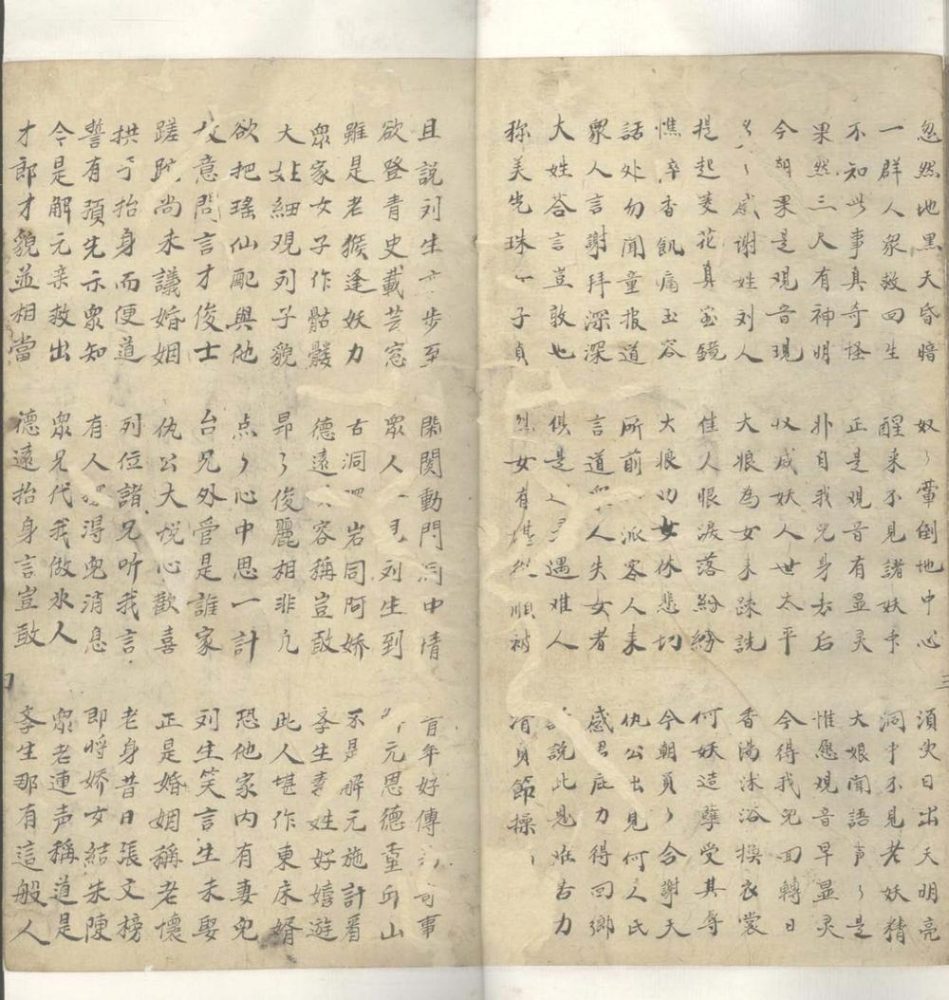 忽然地黑天昏暗 奴々暈倒地中心 須臾日出天明亮
一群人衆救回生 醒来不見諸妖 洞中不見老妖精
不知此事真奇怪 正是观音有显灵 大娘聞語声々是
果然三尺有神明 非自我兒身去后 惟愿观音早显灵
今朝果是观音現 収成妖人世太平 今得我兒回轉日
々感谢姓刘人 大娘為女未疎説 香湯沐浴換衣裳
提起菱花真宝鏡 佳人恨淚落紛紛 何妖造孽受其辱
憔悴香飢痛玉容 大娘叻女休悲切 今朝員々合謝天
話处勿聞童报道 所前一派客人来 仇公出見何人氏
衆人言謝拜深深 言道衆人失女者 感君庇力得回鄉
大姓答言豈敢也 俱是遇难人 説此恩难古力
称美先珠一子貞 女有堪順被 有貞節操
且説列生步至 閑関動門洞中情 百年好傳可事
欲登青史載芸窓 衆人見列生到 元恩德重丘山
雖是老猴逢妖力 古洞岩同阿娇 不是解元施計看
衆家女子作骷髏 德遠容稱豈敢 李生妻姓好嬉遊
大姓細观列子貌 昂々俊麗相非凡 此人堪作東床婿
欲把瑶仙配與他 点々心中思一計 恐他家内有妻兒
意問言才俊士 台兄外管是誰家 列生笑言生未娶
蹉跎尚未議婚姻 仇公大悦心歡喜 正是婚姻稱老懷
拱手抬身而便道 列位諸兄听我言 老身昔日張文榜
誓有預先示衆知 有人得兒消息 即將娇女結朱陳
令是解元亲救出 衆兄代我做氷人 衆老連声稱道是
才郎才貌並相當 德遠抬身言豈敢 李生那有這般人